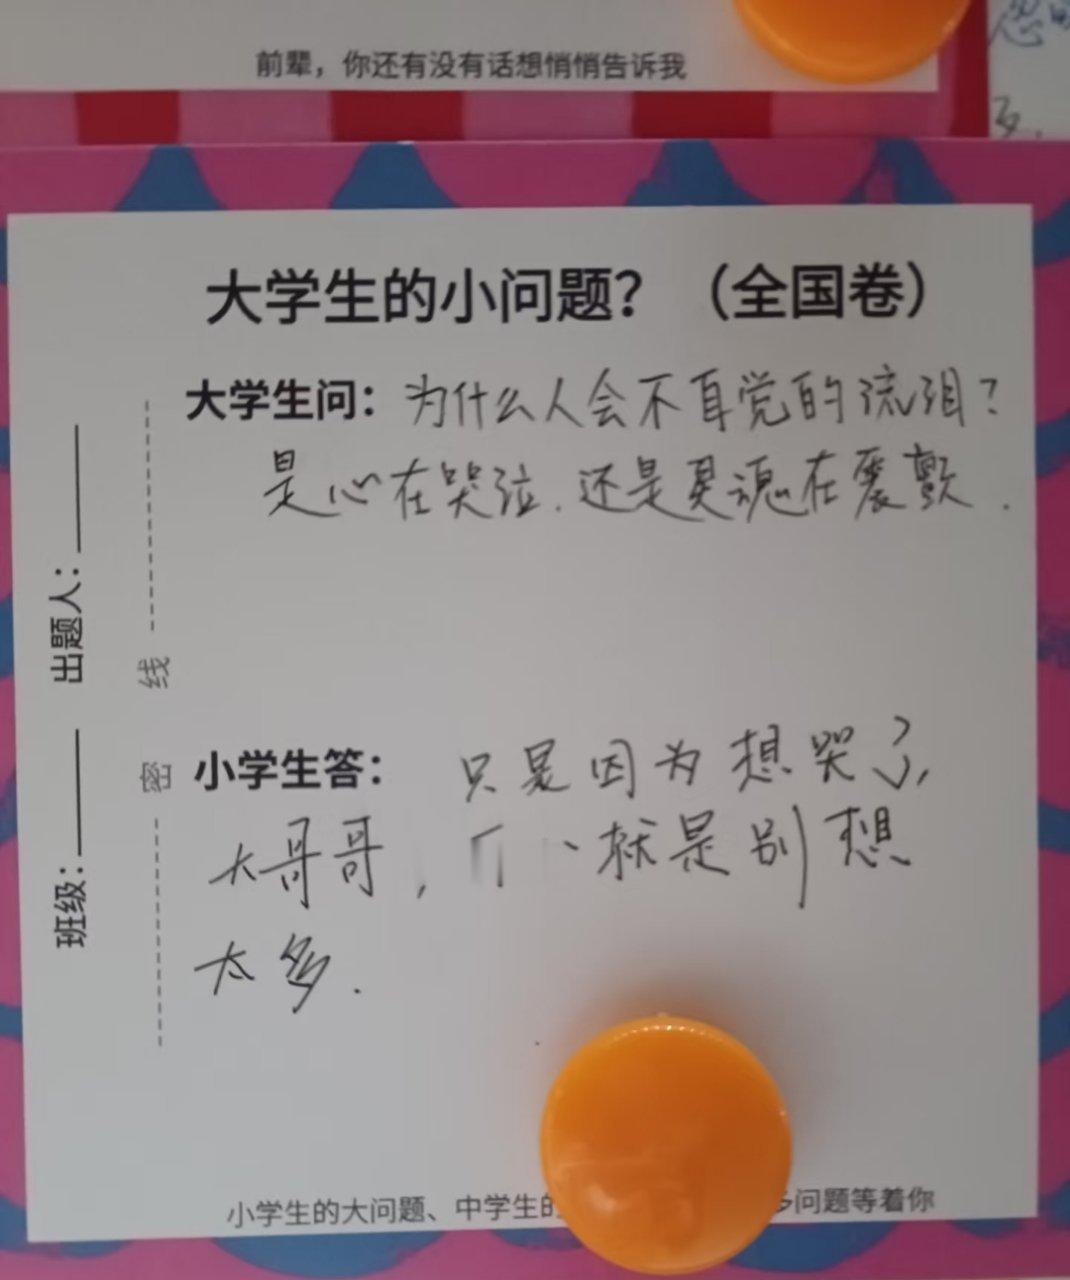 前辈，你还有没有话想悄悄告诉我
大学生的小问题？（全国卷）
大学生问：为什么人会不自觉的流泪？
是心在哭泣．还是灵魂在震颤．
出题人：
班级：
线
密
小学生答：只是因为想哭了，
大哥哥，就是别想
太多．
小学生的大问题、中学生的 多问题等着你